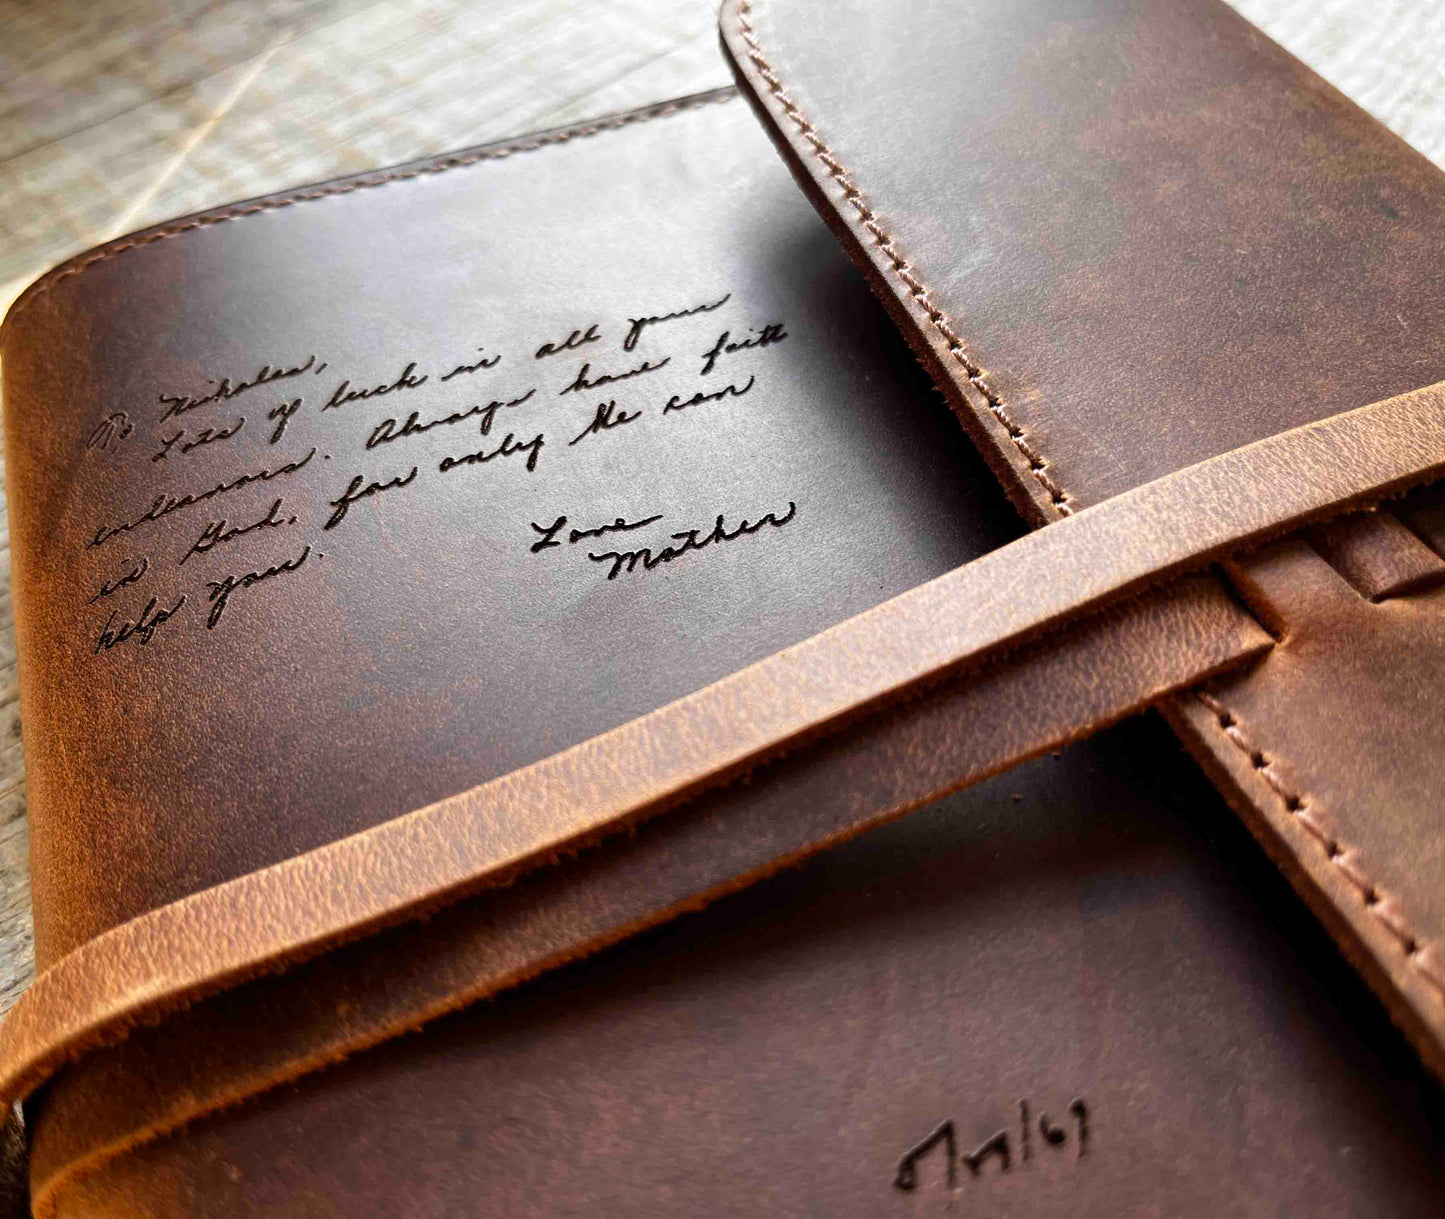 To Nicholas,
Lots of luck in all your
endeavors. Always have faith
in God, for only He can
help you.
Love
Mother